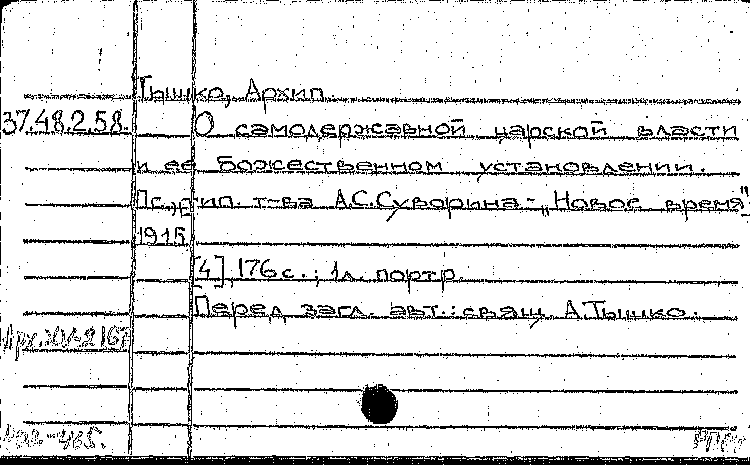 Тышко, Архип.
37.48.2.58. О самодержавной царской власти
и ее божественном установлении.
Пг., тип. т-ва А.С.Суворина-„Новое время"
1915
[4], 176 с.; 1 л. портр.
Перед загл. авт.: свящ. А.Тышко.